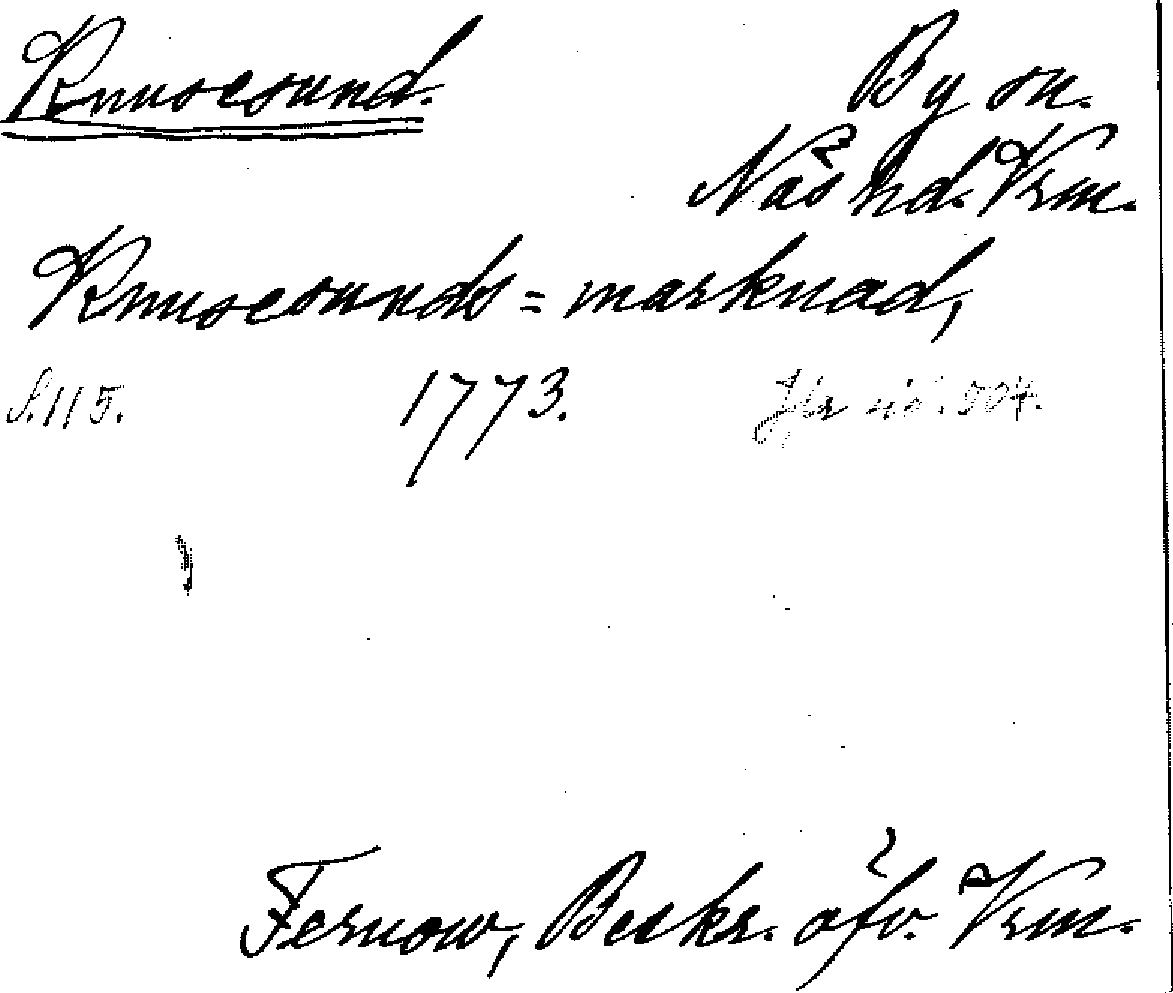 Knusesund.
By sn.
Näs hd. Vrm.
Knusesunds=marknad,
S. 115. 1773. Jfr sid. 504.
Fernow, Beskr. öfv. Vrm.